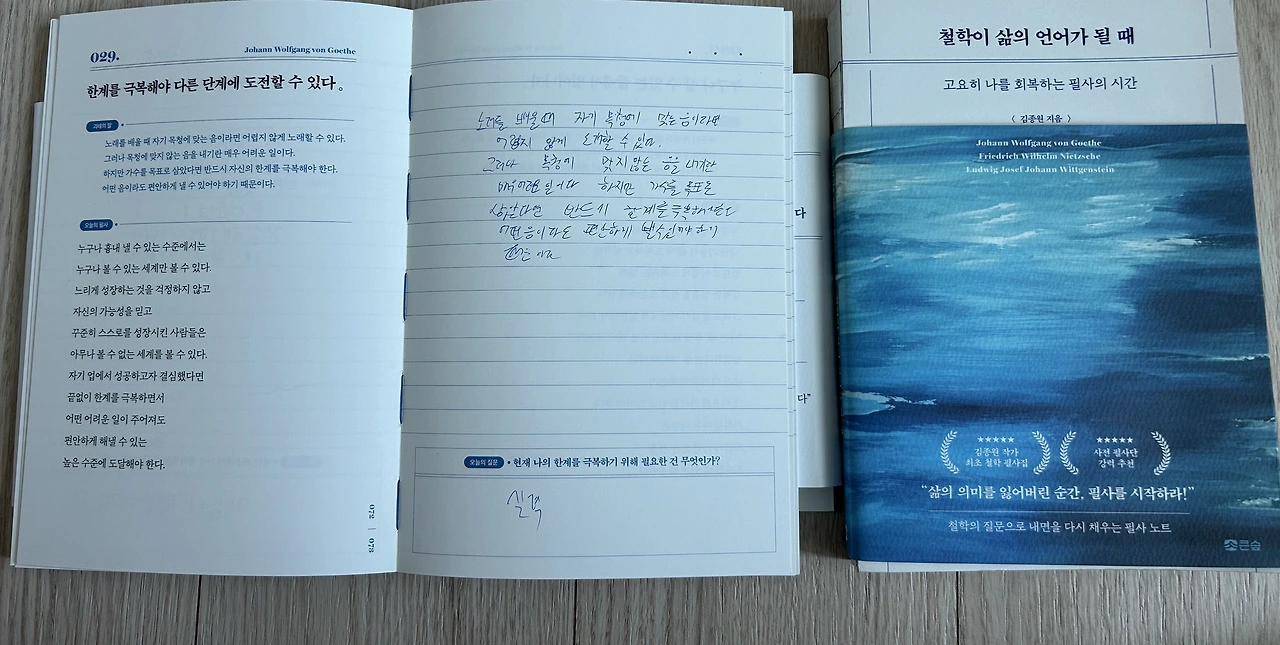 029.
Johann Wolfgang von Goethe
한계를 극복해야 다른 단계에 도전할 수 있다.
괴테의 말
노래를 배울 때 자기 목청에 맞는 음이라면 어렵지 않게 노래할 수 있다.
그러나 목청에 맞지 않는 음을 내기란 매우 어려운 일이다.
하지만 가수를 목표로 삼았다면 반드시 자신의 한계를 극복해야 한다.
어떤 음이라도 편안하게 낼 수 있어야 하기 때문이다.
오늘의 필사
누구나 흉내 낼 수 있는 수준에서는
누구나 볼 수 있는 세계만 볼 수 있다.
느리게 성장하는 것을 걱정하지 않고
자신의 가능성을 믿고
꾸준히 스스로를 성장시킨 사람들은
아무나 볼 수 없는 세계를 볼 수 있다.
자기 업에서 성공하고자 결심했다면
끝없이 한계를 극복하면서
어떤 어려운 일이 주어져도
편안하게 해낼 수 있는
높은 수준에 도달해야 한다.
072 | 073
노래를 배울 때 자기 목청에 맞는 음이라면
어렵지 않게 노래할 수 있다.
그러나 목청에 맞지 않는 음을 내기란
하지만 가수를 목표로
삼았다면 반드시 한계를 극복해야한다
어떤음이라도 편안하게 낼수있어야 하기
때문이다
오늘의 질문 • 현재 나의 한계를 극복하기 위해 필요한 건 무엇인가?
다
다”
철학이 삶의 언어가 될 때
고요히 나를 회복하는 필사의 시간
〈 김종원 지음 〉
Johann Wolfgang von Goethe
Friedrich Wilhelm Nietzsche
Ludwig Josef Johann Wittgenstein
★★★★★
김종원 작가
최초 철학 필사집
★★★★★
사전 필사단
강력 추천
“삶의 의미를 잃어버린 순간, 필사를 시작하라!”
철학의 질문으로 내면을 다시 채우는 필사 노트
큰숲